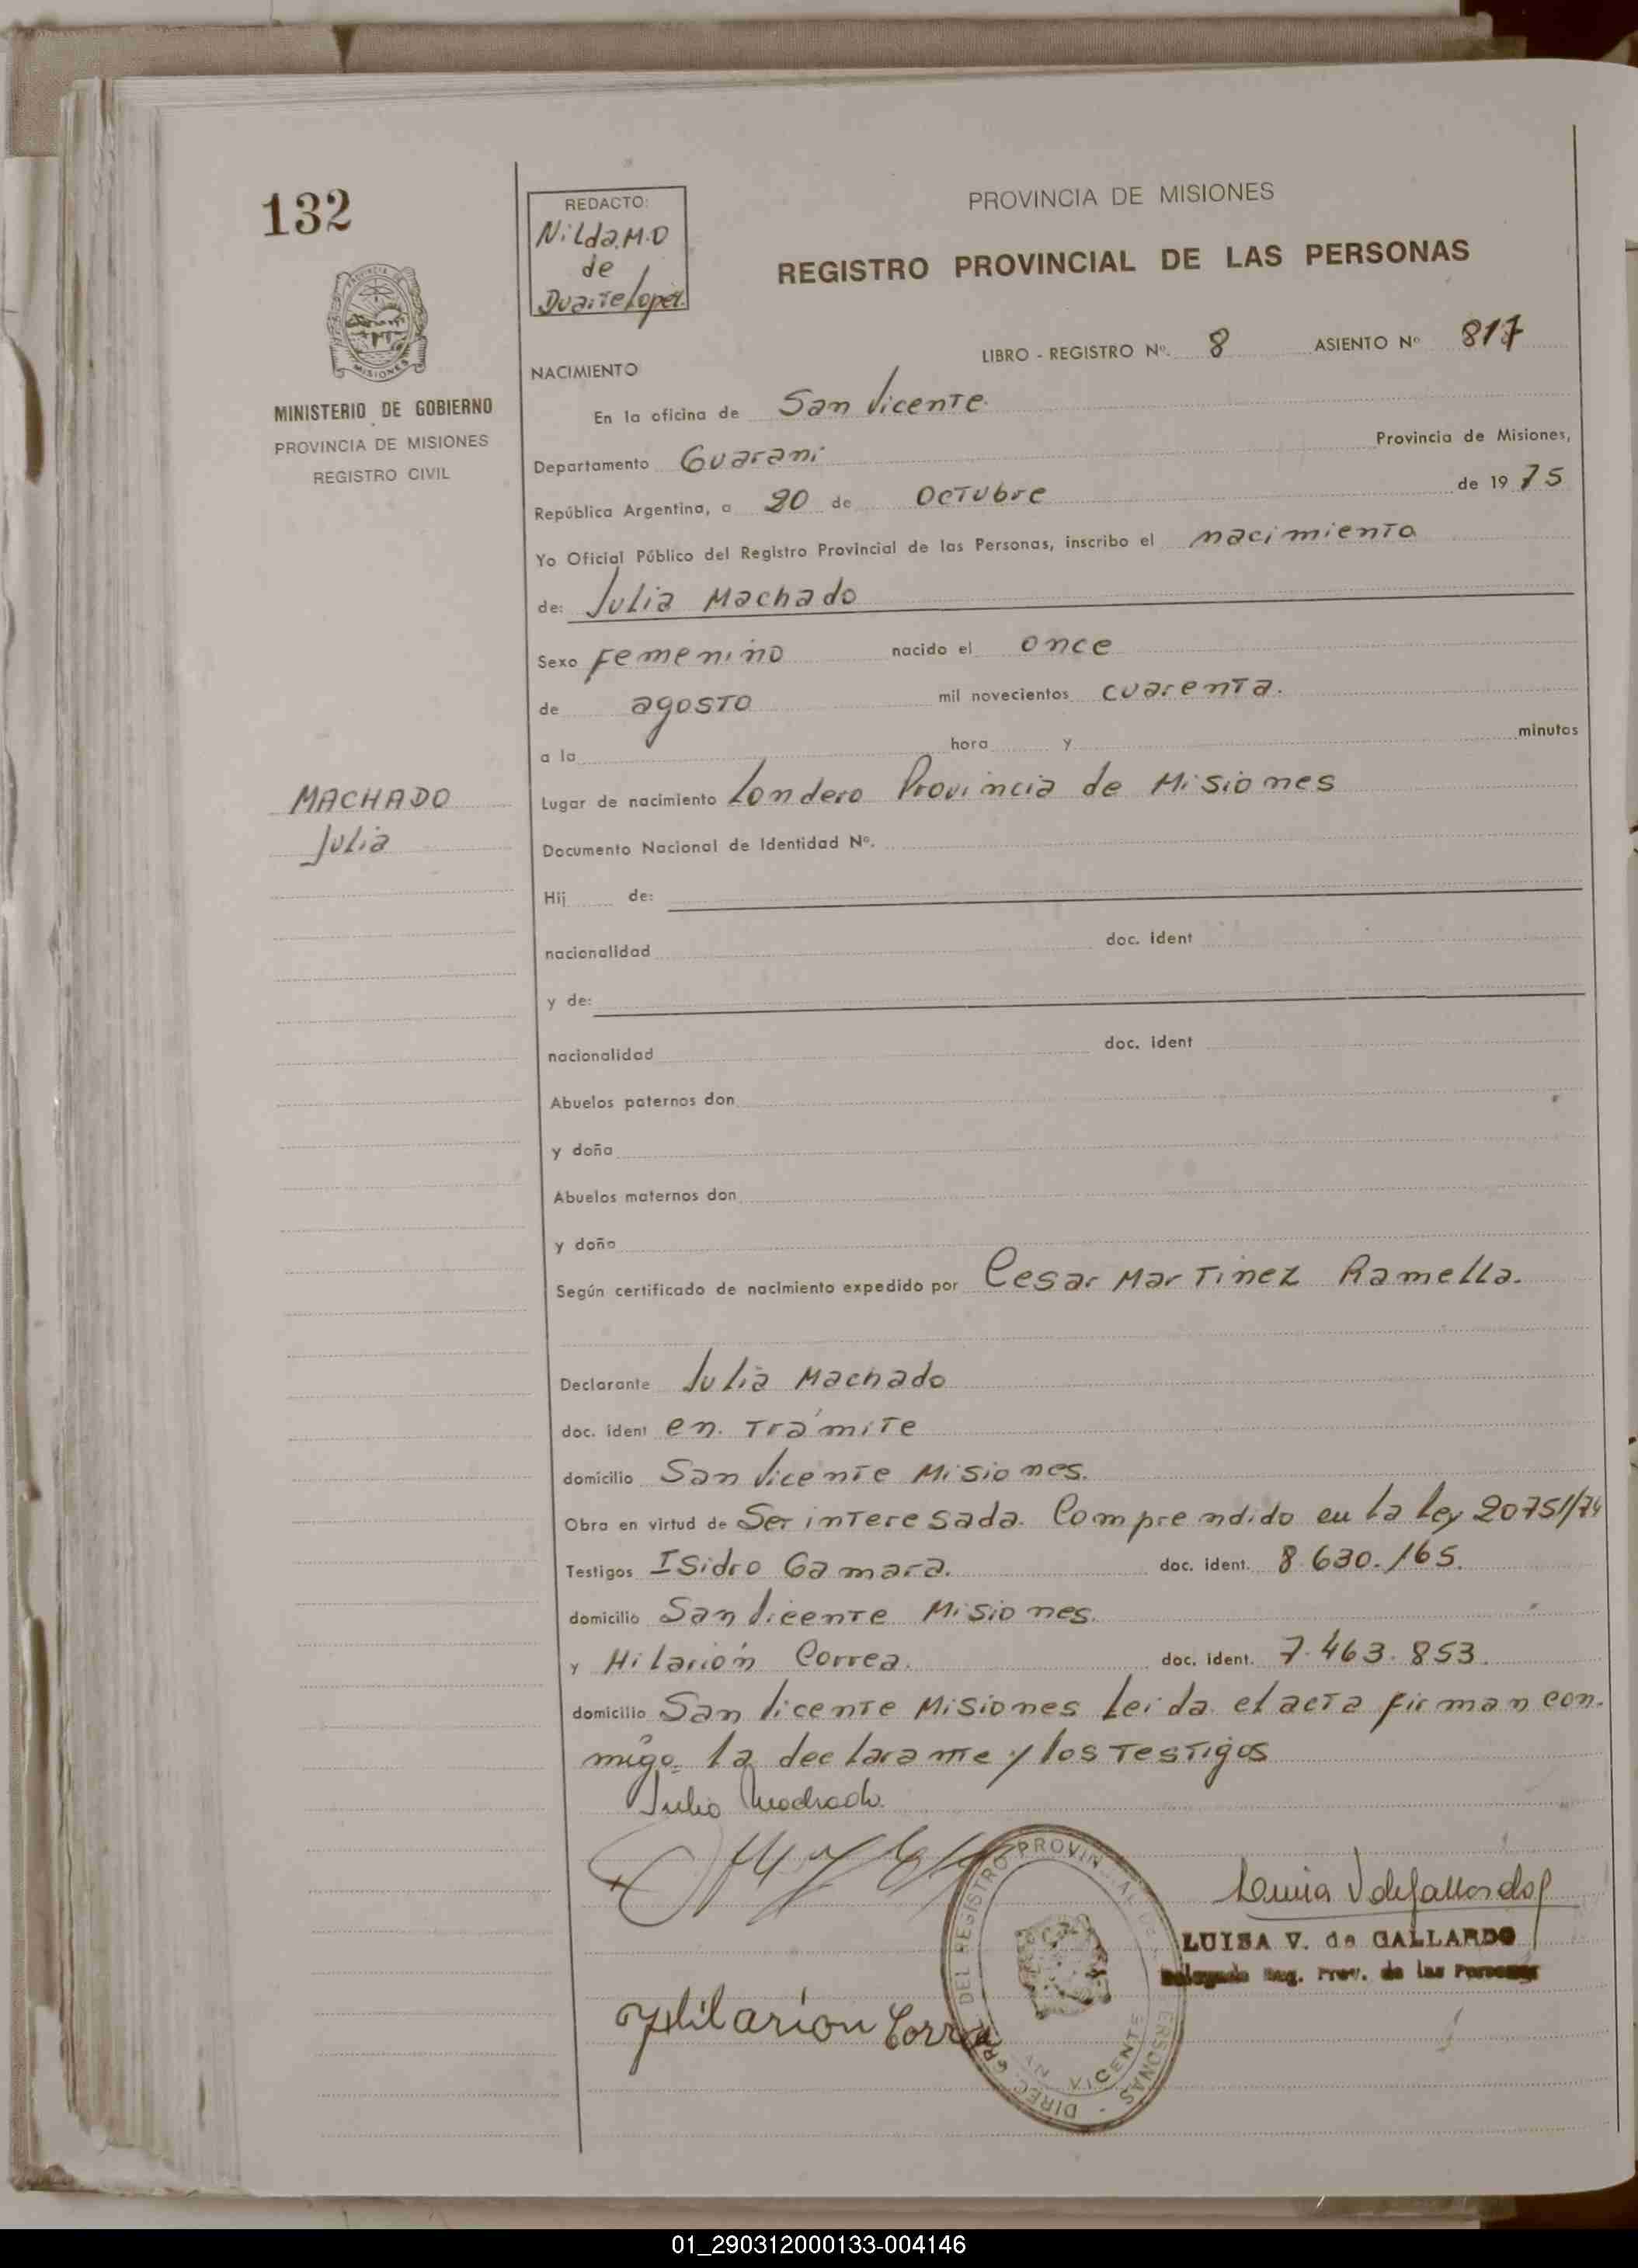 132
REDACTO:
Nilda.M.D
de
Duarte Lopez.
PROVINCIA DE MISIONES
REGISTRO PROVINCIAL DE LAS PERSONAS
LIBRO - REGISTRO Nº. 8 ASIENTO Nº 817
MINISTERIO DE GOBIERNO
PROVINCIA DE MISIONES
REGISTRO CIVIL
NACIMIENTO
En la oficina de San Vicente.
Departamento Guarani Provincia de Misiones,
República Argentina, a 20 de Octubre de 1975
Yo Oficial Público del Registro Provincial de las Personas, inscribo el nacimiento
de: Julia Machado
Sexo Femenino nacido el once
de agosto mil novecientos cuarenta.
a la hora y minutos
MACHADO
Julia
Lugar de nacimiento Londero Provincia de Misiones
Documento Nacional de Identidad Nº.
Hij de:
nacionalidad doc. ident
y de:
nacionalidad doc. ident
Abuelos paternos don
y doña
Abuelos maternos don
y doña
Según certificado de nacimiento expedido por Cesar Martinez Ramella.
Declarante Julia Machado
doc. ident en. trámite
domicilio San Vicente Misiones.
Obra en virtud de Ser interesada. Comprendido en la Ley 20751/74
Testigos Isidro Gamara. doc. ident. 8.630.165.
domicilio San Vicente Misiones.
y Hilarión Correa. doc. ident. 7.463.853.
domicilio San Vicente Misiones Leida el acta firman con-
migo la declarante y los testigos
Julia Machado
Luisa V de Gallardo
LUISA V. de GALLARDO
Delegada Reg. Prov. de las Personas
Hilarion Correa
DIREC. GRAL. DEL REGISTRO PROVINCIAL DE LAS PERSONAS
SAN VICENTE
01_290312000133-004146